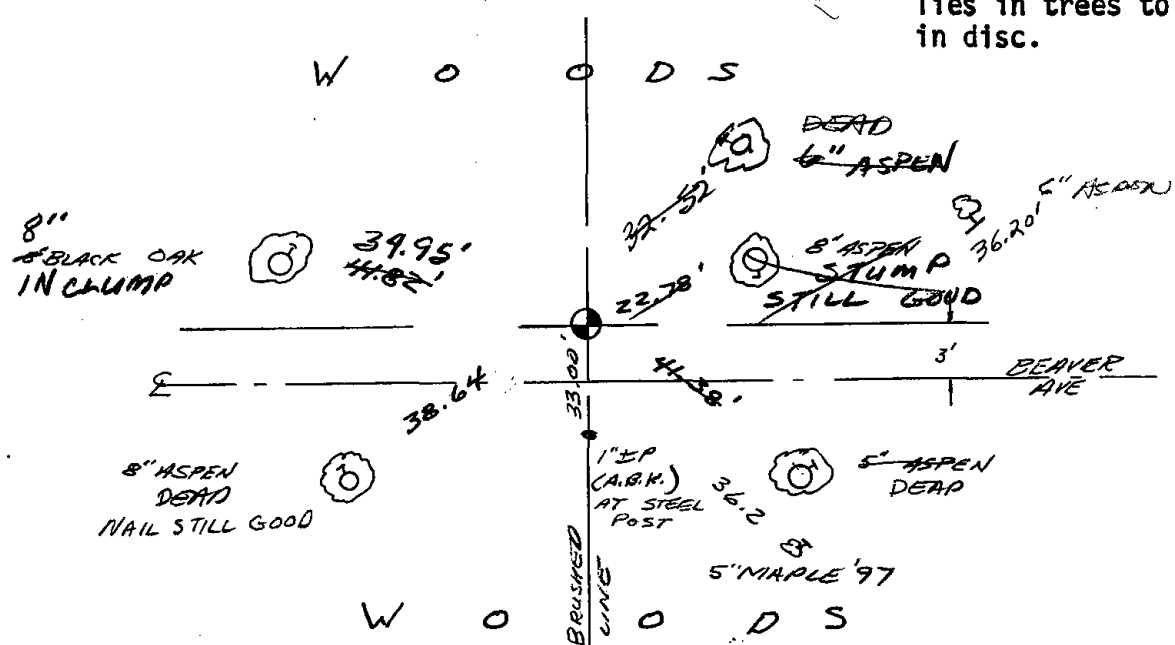 Ties in trees to
in disc.
W O O D S
DEAD
6" ASPEN
6" ASPEN
36.20'
32.52'
8"
BLACK OAK
IN CLUMP
39.95'
41.82'
8" ASPEN
STUMP
STILL GOOD
22.78'
33.00'
3'
BEAVER
AVE
℄
38.64
41.38'
8" ASPEN
DEAD
NAIL STILL GOOD
1" IP
(A.B.K.)
AT STEEL
POST
36.2
5" ASPEN
DEAD
5" MAPLE '97
BRUSHED
LINE
W O O D S